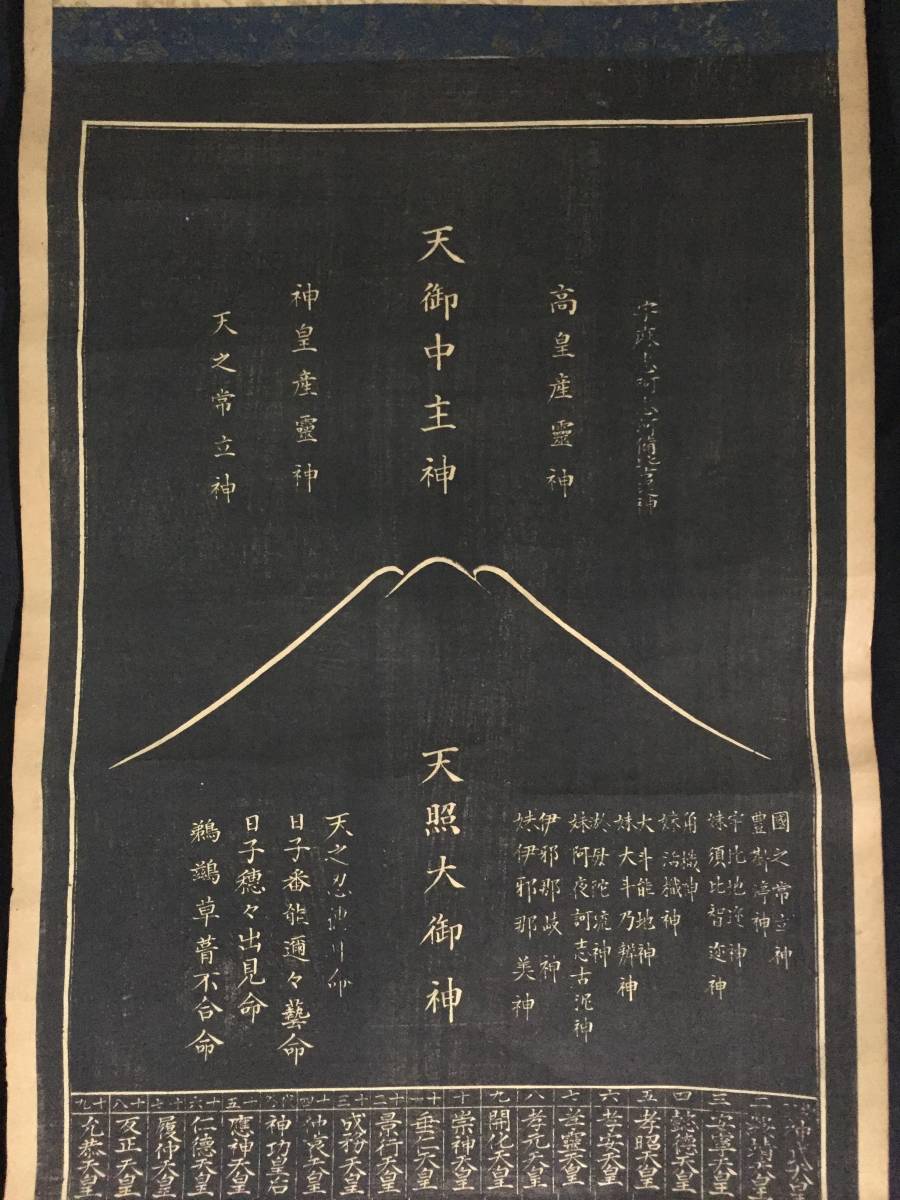 高皇産靈神
天御中主神
神皇産靈神
天之常立神
國之常立神
豐斟渟神
宇比地迩神
妹須比智迩神
角樴神
妹活樴神
大斗能地神
妹大斗乃辨神
於母陀琉神
妹阿夜訶志古泥神
伊邪那岐神
妹伊邪那美神
天照大御神
天之忍
日子番能邇々藝命
日子穂々出見命
鵜鷀草葺不合命
三 安寧天皇
四 懿德天皇
五 孝昭天皇
六 孝安天皇
七 孝靈天皇
八 孝元天皇
九 開化天皇
十 崇神天皇
十一 垂仁天皇
十二 景行天皇
十三 成務天皇
十四 仲哀天皇
神功皇后
十五 應神天皇
十六 仁德天皇
十七 履仲天皇
十八 反正天皇
十九 允恭天皇